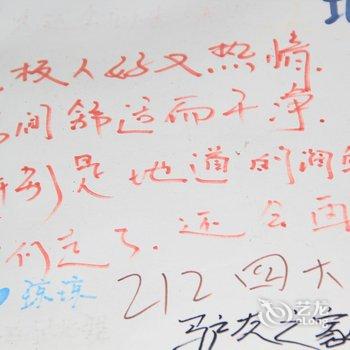 板人好又热情.
间舒适而干净.
别是地道的润
们走了.还会再
琼琼
212四大
驴友之家
艺龙